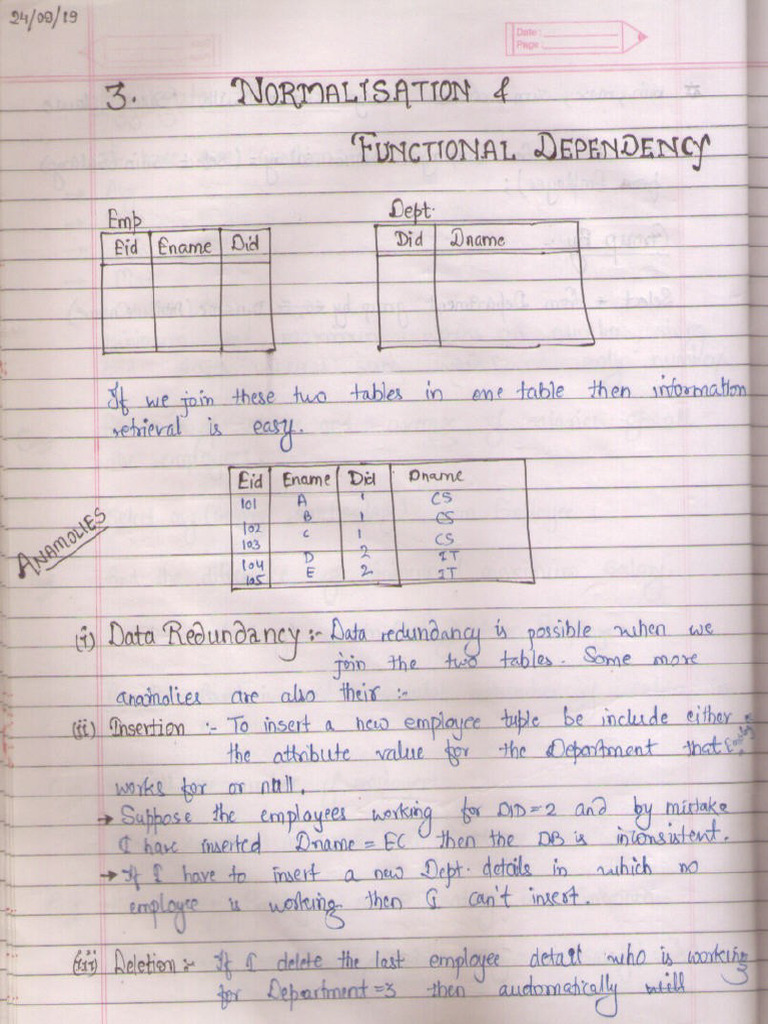 24/09/19
Date:
Page
3. NORMALISATION &
FUNCTIONAL DEPENDENCY
Emp
Dept.
Eid Ename Did
Did Dname
If we join these two tables in one table then information
retrieval is easy.
Eid Ename Did Dname
101 A 1 CS
102 B 1 CS
103 C 1 CS
104 D 2 IT
105 E 2 IT
ANAMOLIES
(i) Data Redundancy :- Data redundancy is possible when we
join the two tables. Some more
anamolies are also their :-
(ii) Insertion :- To insert a new employee tuple be include either
the attribute value for the Department that
works for or null.
→ Suppose the employees working for DID=2 and by mistake
I have inserted Dname = EC then the DB is inconsistent.
→ If I have to insert a new Dept. details in which no
employee is working then I can't insert.
(iii) Deletion :- If I delete the last employee detail who is working
for Department=3 then audomatically will